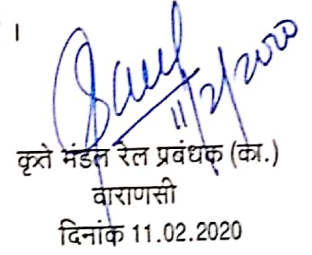 ।
11/2/2020
कृते मंडल रेल प्रबंधक (का.)
वाराणसी
दिनांक 11.02.2020